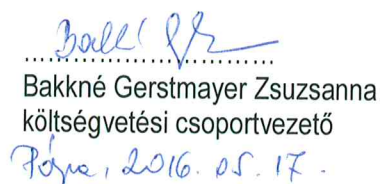 ..............................
Bakkné Gerstmayer Zsuzsanna
költségvetési csoportvezető
2016. 05. 17.